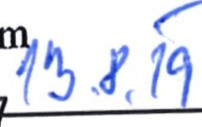 m 13.8.19